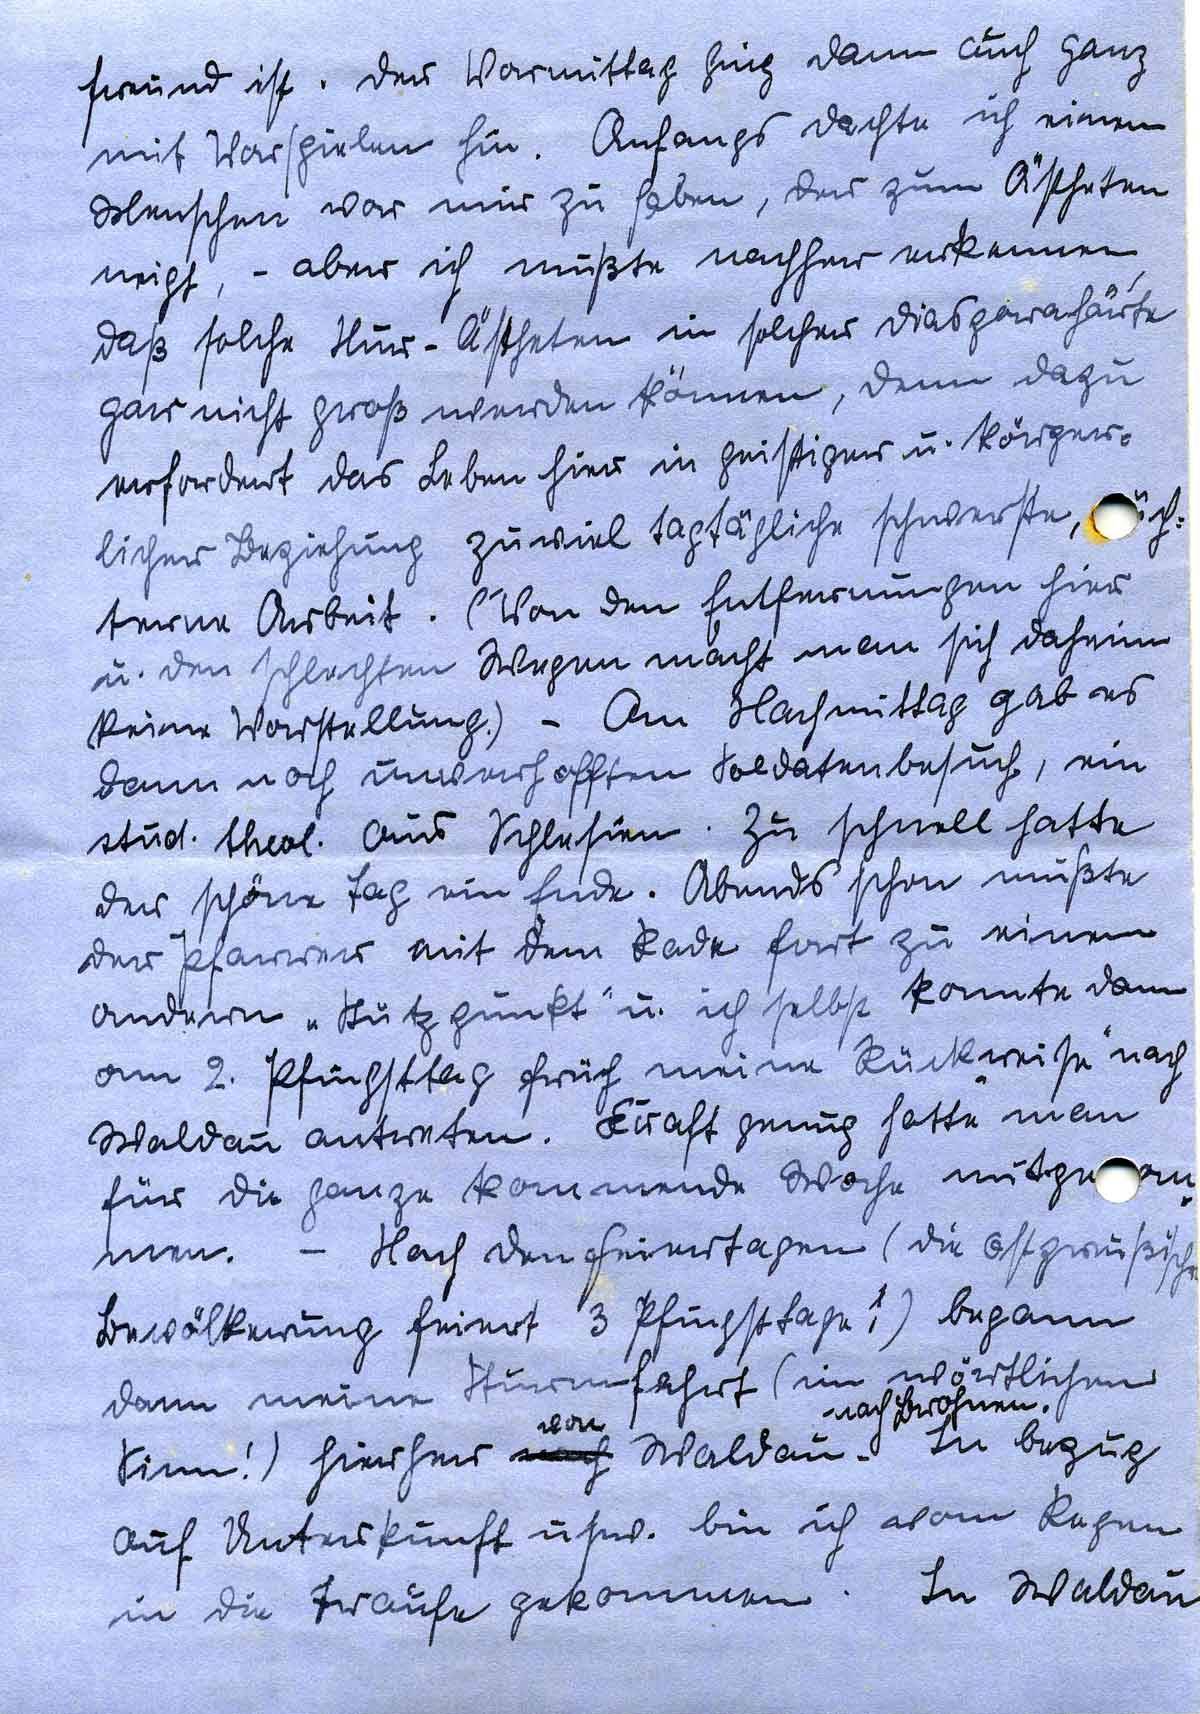 freund ist. Der Vormittag ging dann auch ganz
mit Vorspielen hin. Anfangs dachte ich einen
Menschen vor mir zu haben, der zum Ästheten
neigt, - aber ich mußte nachher erkennen,
daß solche Nur-Ästheten in solcher Diasporahärte
gar nicht groß werden können, denn dazu
erfordert das Leben hier in geistiger u. körper-
licher Beziehung zuviel tagtägliche schwerste,
terne Arbeit. (Von den Entfernungen hier
u. den schlechten Wegen macht man sich daheim
keine Vorstellung.) - Am Nachmittag gab es
dann noch unverhofften Soldatenbesuch, ein
stud. theol. aus Schlesien. Zu schnell hatte
der schöne Tag ein Ende. Abends schon mußte
der Pfarrer mit dem Rade fort zu einem
andern „Stützpunkt" u. ich selbst konnte dann
am 2. Pfingsttag früh meine Rück„reise" nach
Waldau antreten. Kraft genug hatte man
für die ganze kommende Woche mitgenom-
men. - Nach den Feiertagen (die ostpreußische
Bevölkerung feiert 3 Pfingsttage!) begann
dann meine Sturmfahrt (im wörtlichen
Sinn!) hierher von Waldau nach Brohnen. In bezug
auf Unterkunft usw. bin ich vom Regen
in die Traufe gekommen. In Waldau